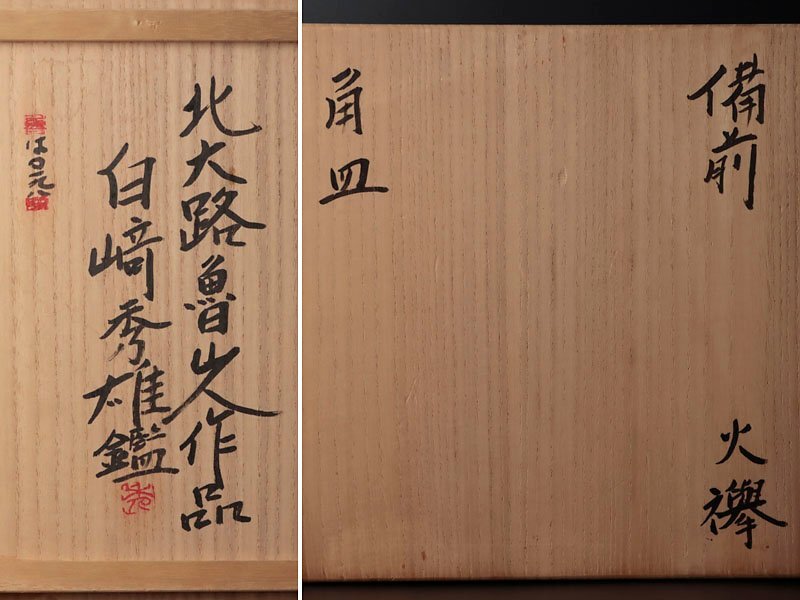 北大路魯山人作品
白﨑秀雄鑑
備前
火襷
角皿